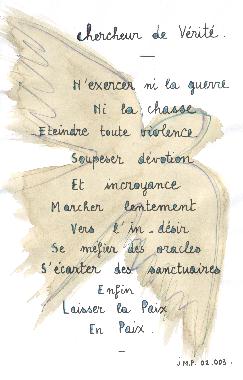 Chercheur de Vérité.
N'exercer ni la guerre
Ni la chasse
Eteindre toute violence
Soupeser dévotion
Et incroyance
Marcher lentement
Vers l'in-désir
Se méfier des oracles
S'écarter des sanctuaires
Enfin
Laisser la Paix
En Paix.
J.M.P. 02.003.